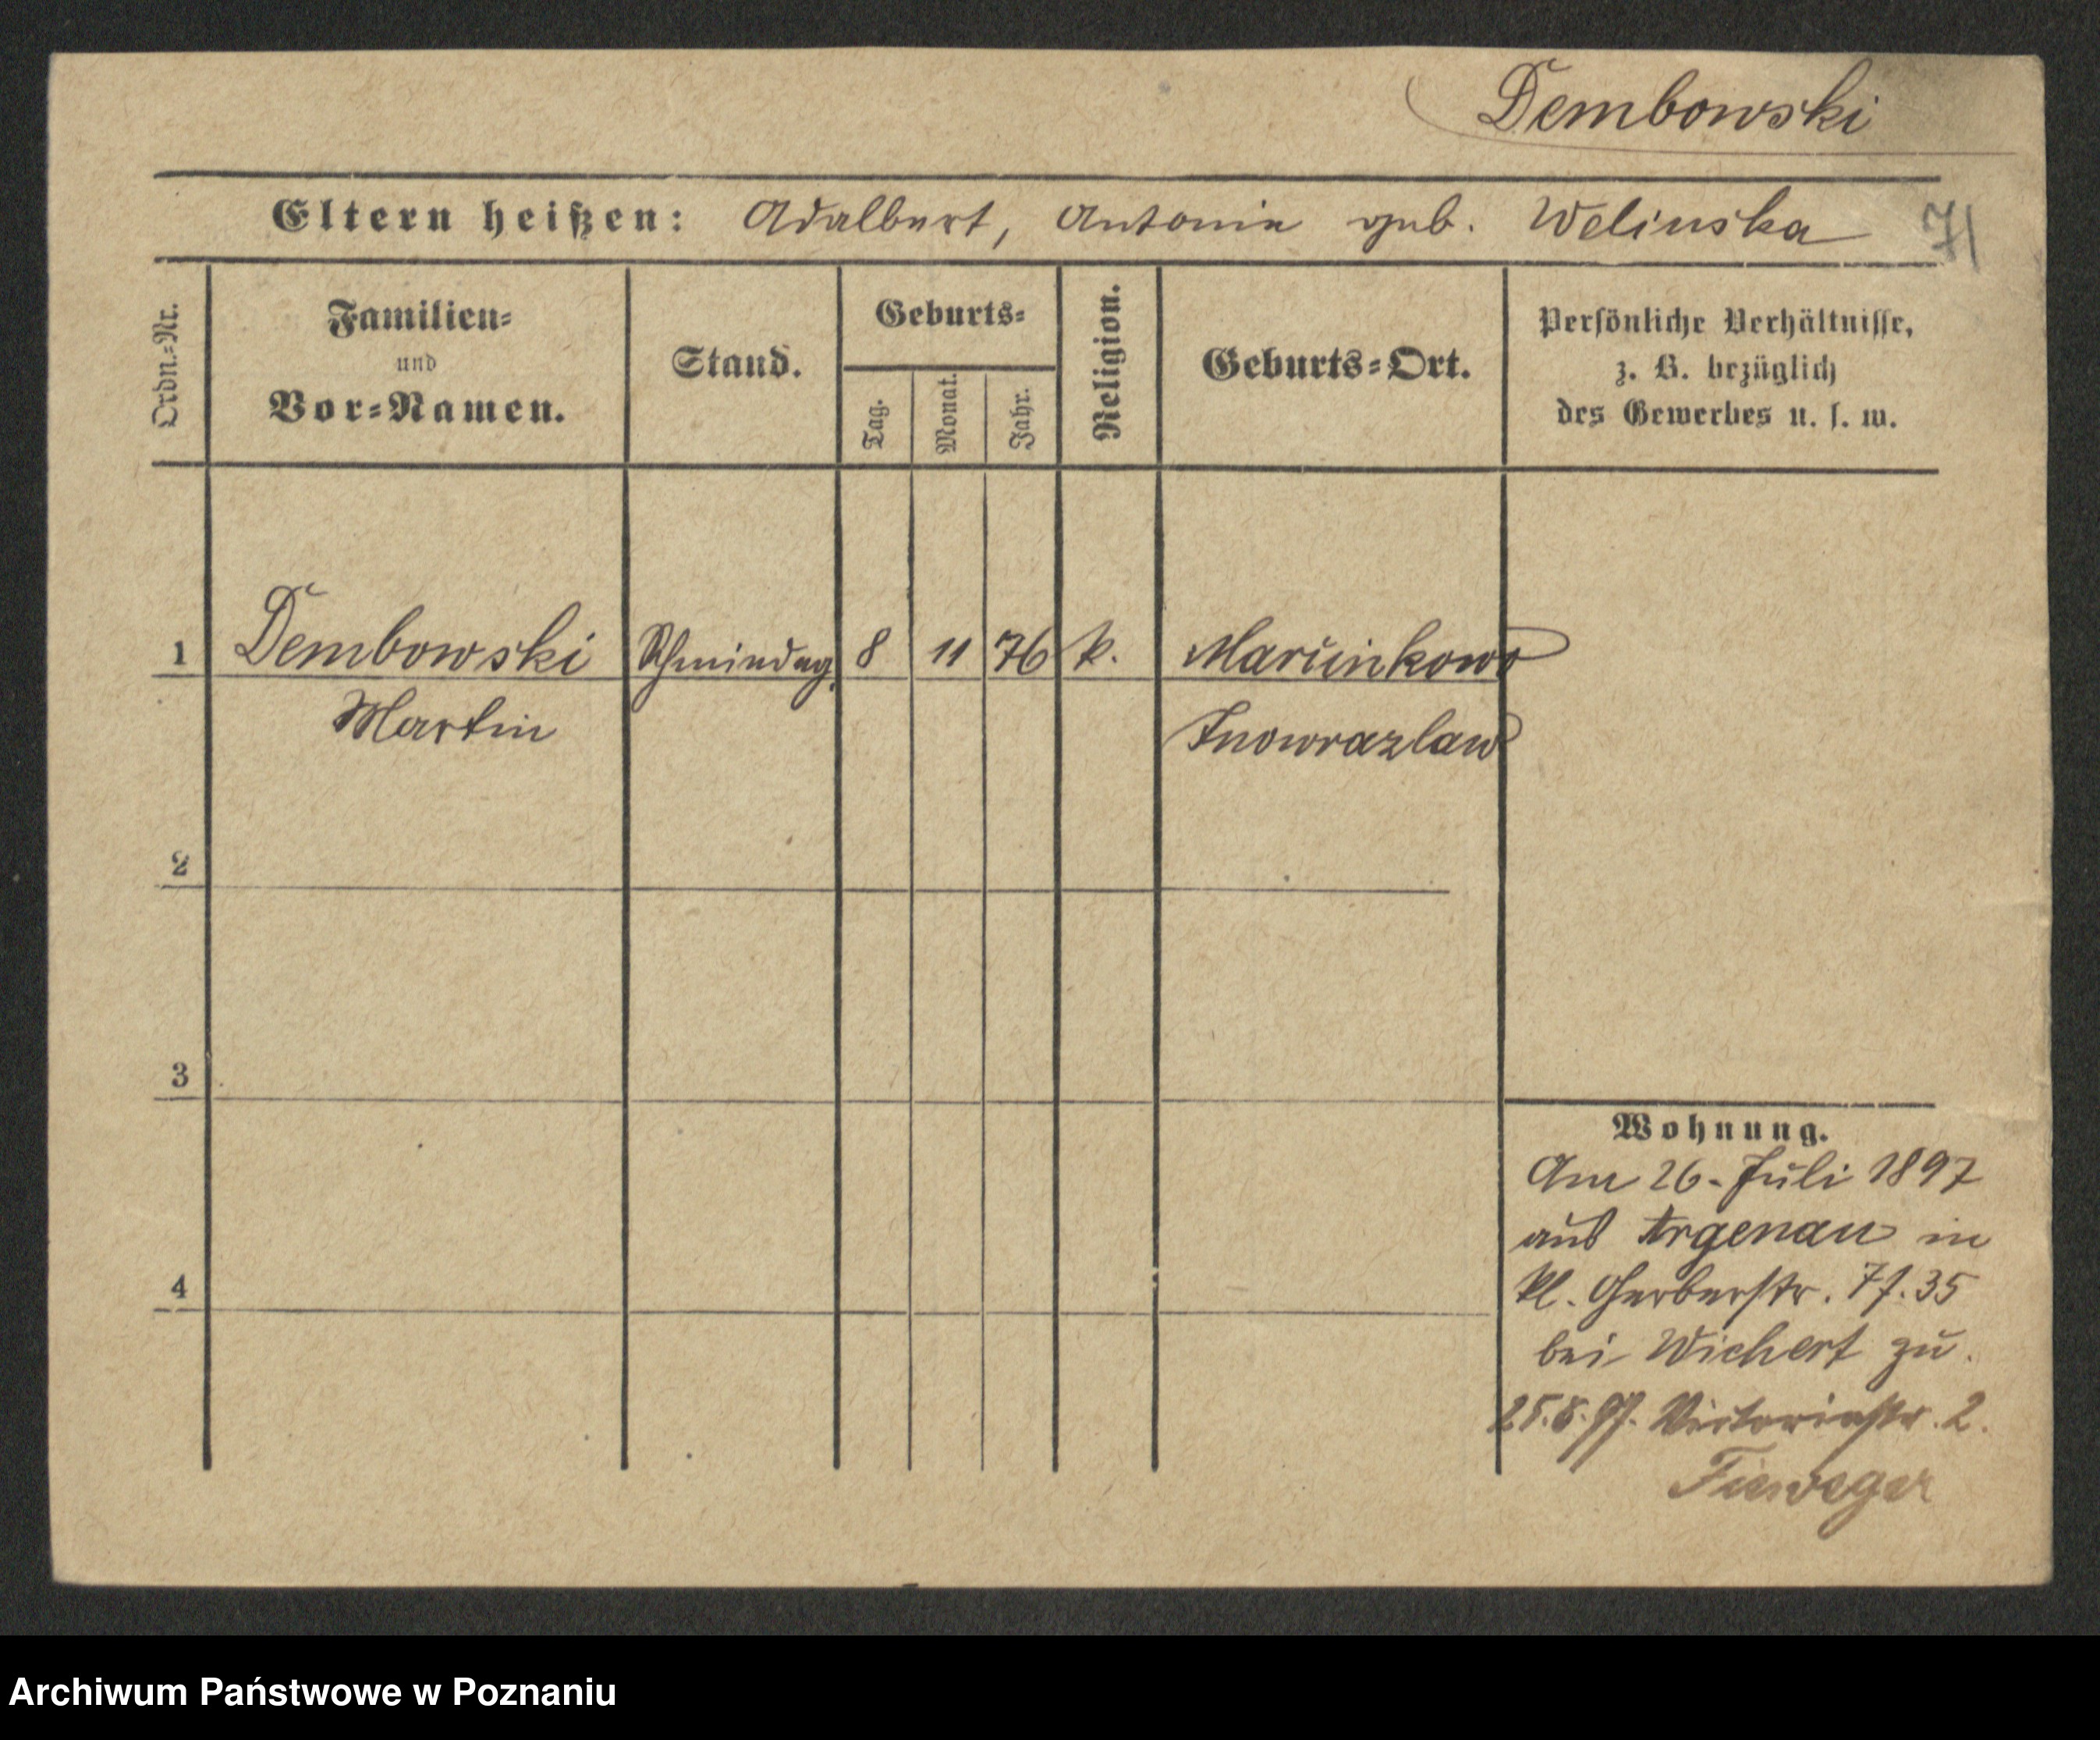 Dembowski
Eltern heißen: Adalbert, Antonie geb. Welinska
71
Ordn.=Nr.
Familien=
und
Vor=Namen.
Stand.
Geburts=
Tag.
Monat.
Jahr.
Religion.
Geburts=Ort.
Persönliche Verhältnisse,
z. B. bezüglich
des Gewerbes u. s. w.
1 Dembowski 8 11 76 k.
Martin Inowrazlaw
2
3
4
Wohnung.
Am 26. Juli 1897
aus Argenau in
kl. Gerberstr. 7
bei Wichert zu.
25.8.97. Victoriastr. 2.
Archiwum Państwowe w Poznaniu